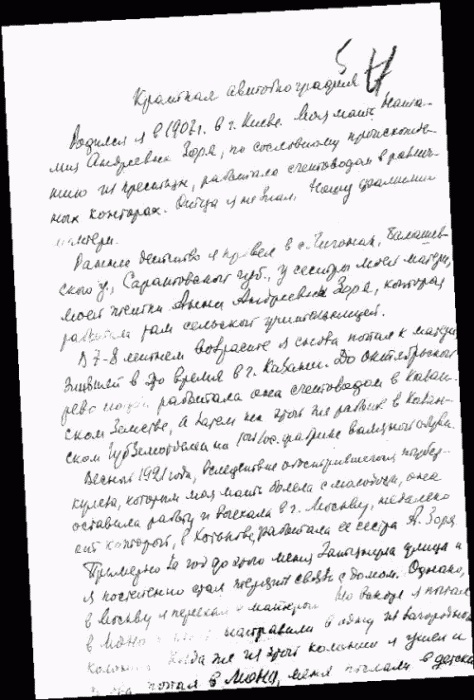 5
Краткая автобиография
Родился я в 1907 г. в г. Киеве. Моя мать, Ната-
лия Андреевна Зоря, по сословному происхожде-
нию из крестьян, работала счетоводом в различ-
ных конторах. Отца я не знал. Ношу фамилию
матери.
Раннее детство я провел в с. Чиганак, Балашев-
ского у. Саратовской губ., у сестры моей матери,
моей тетки Анны Андреевны Зоря, которая
работала там сельской учительницей.
В 7-8 летнем возрасте я снова попал к матери
жившей в то время в г. Казани. До октябрьской
революции работала она счетоводом в Казан-
ском Земстве, а затем
ском
Весной 1921 года, вследствие обострившегося тубер-
кулеза, которым моя мать болела с молодости, она
оставила работу и выехала в г. Москву, недалеко
от которой, в работала ее сестра А. Зоря.
Примерно за год до этого меня затянула улица и
я постепенно стал терять связь с домом. Однако,
в Москву я переехал с матерью. На вокзале я попал
в Моно направили в одну из загородных
колоний. Когда же из этой колонии я ушел и
снова попал в Моно, меня послали в детский